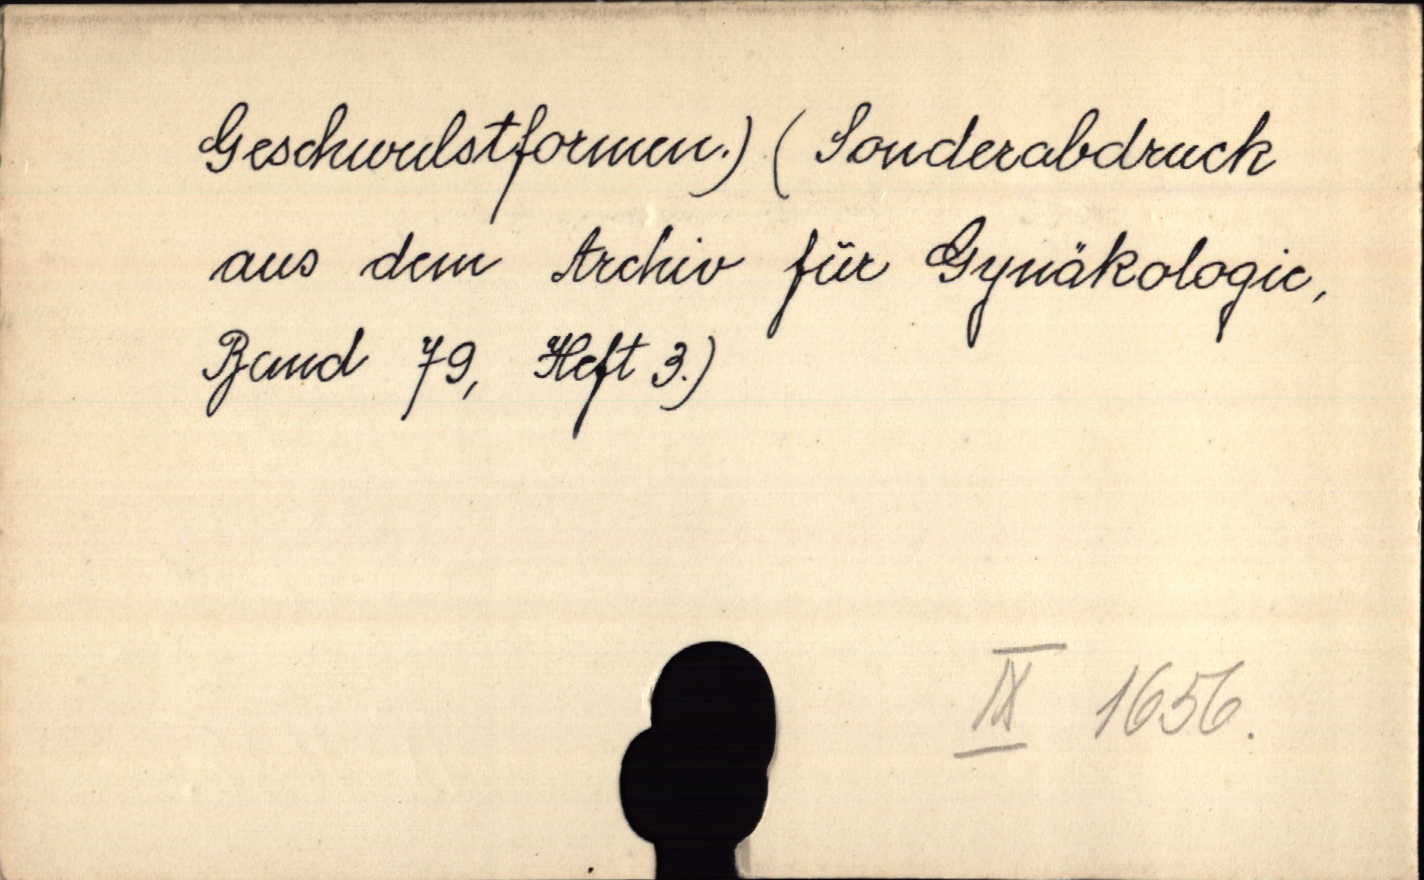 Geschwulstformen.) (Sonderabdruck
aus dem Archiv für Gynäkologie,
Band 79, Heft 3.)
IX 1656.